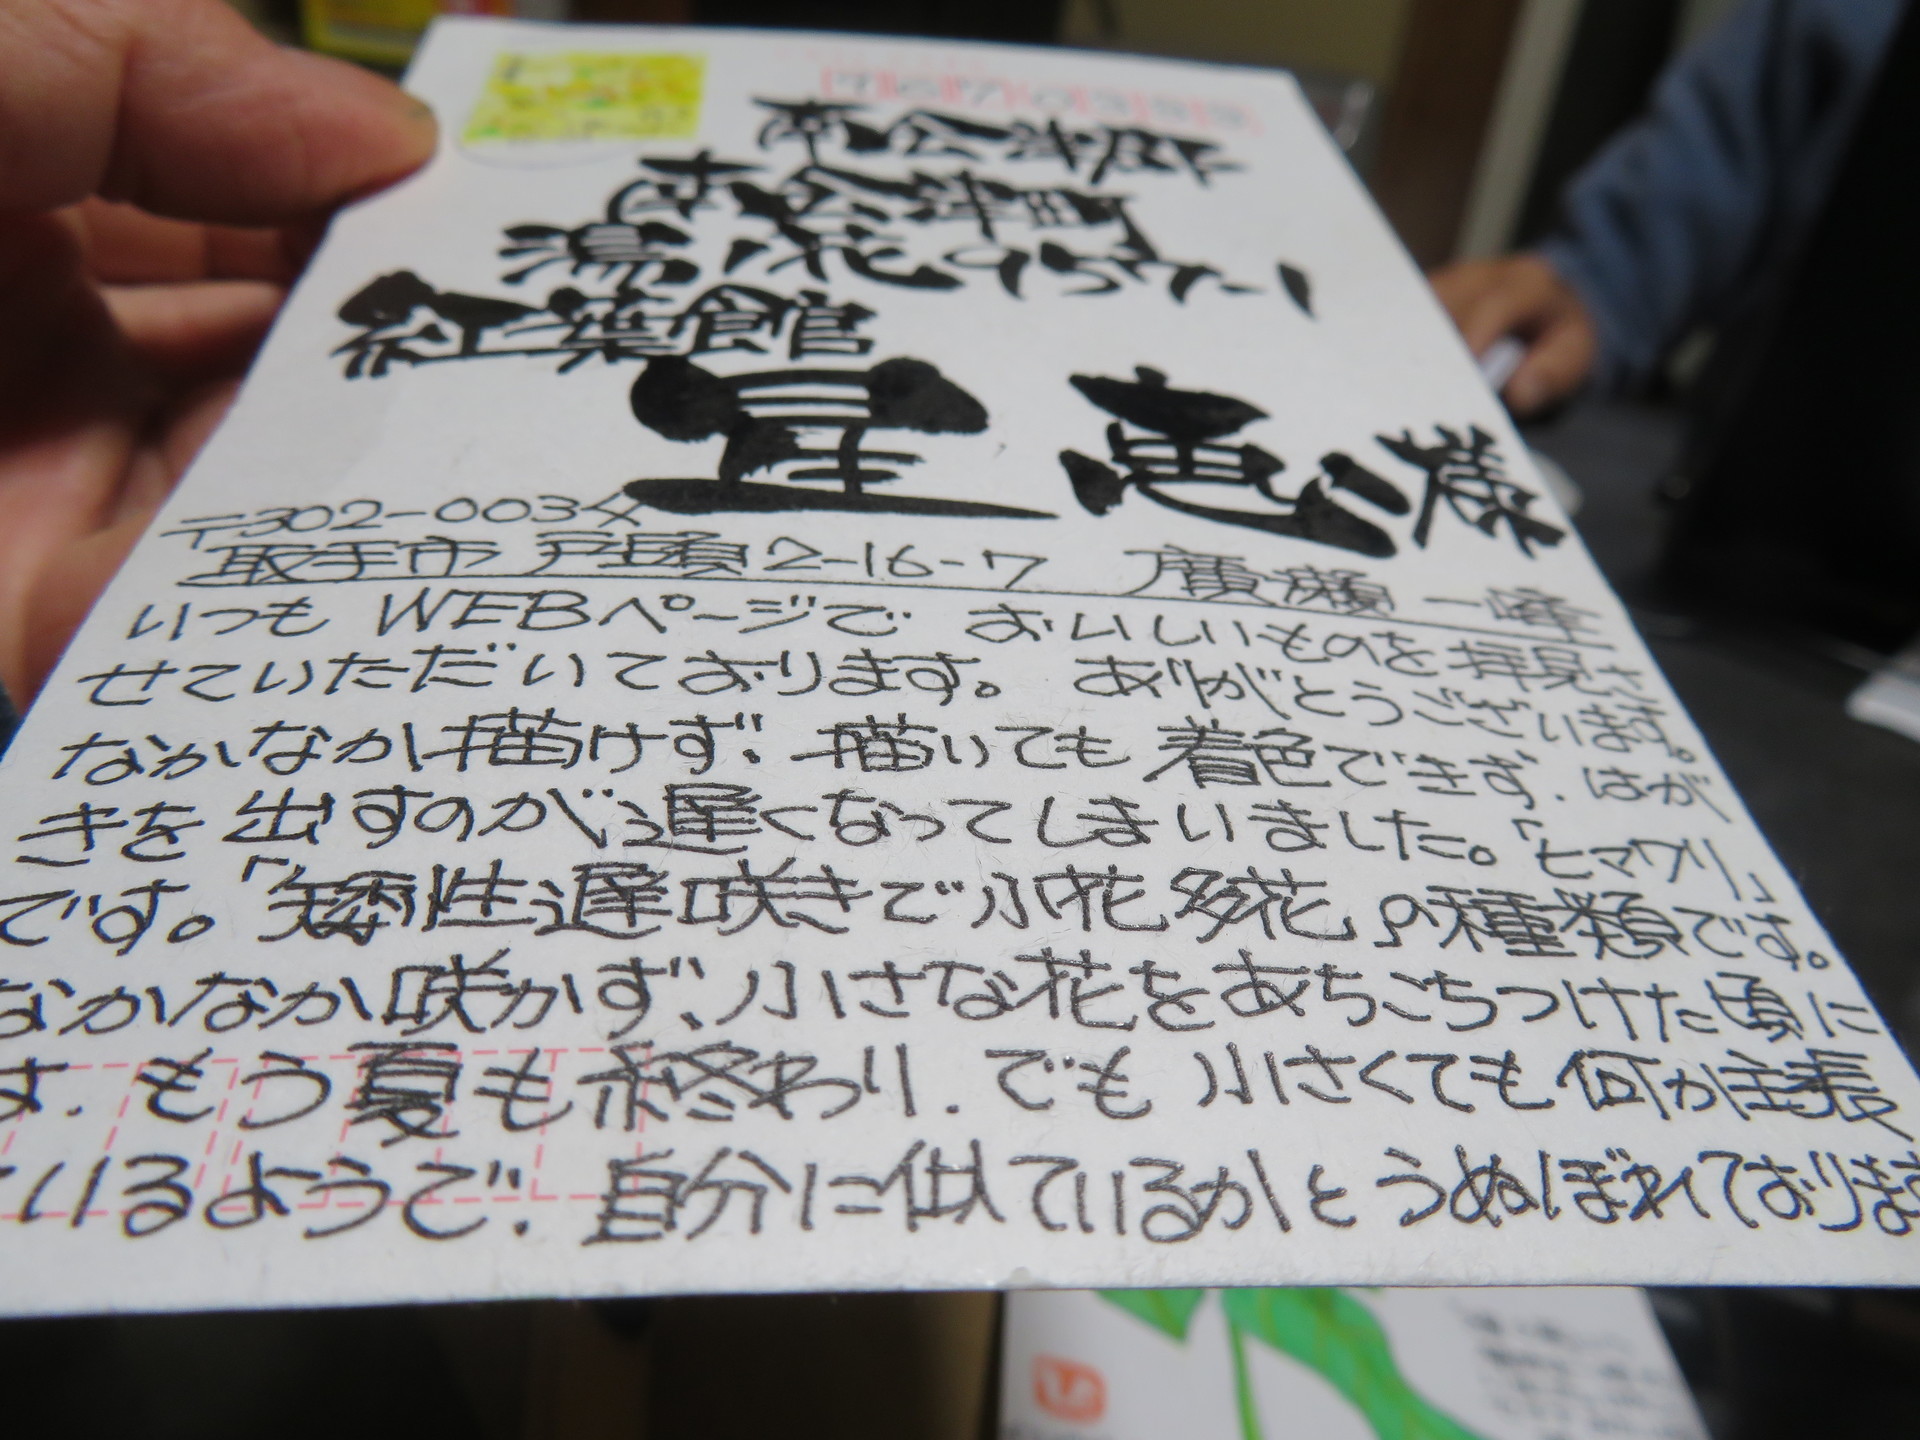 紅葉館
星 恵 様
〒302-0034
取手市 戸頭2-16-7 廣瀬 一峰
いつもWEBページで おいしいものを拝見さ
せていただいております。ありがとうございます。
なかなか描けず、描いても 着色できず、はが
きを出すのが遅くなってしまいました。「ヒマワリ」
です。「矮性遅咲きで小花多花」の種類です。
なかなか咲かず、小さな花をあちこちつけた頃に
す、もう夏も終わり、でも小さくても何か主張
ているようで、自分に似ているかとうぬぼれております